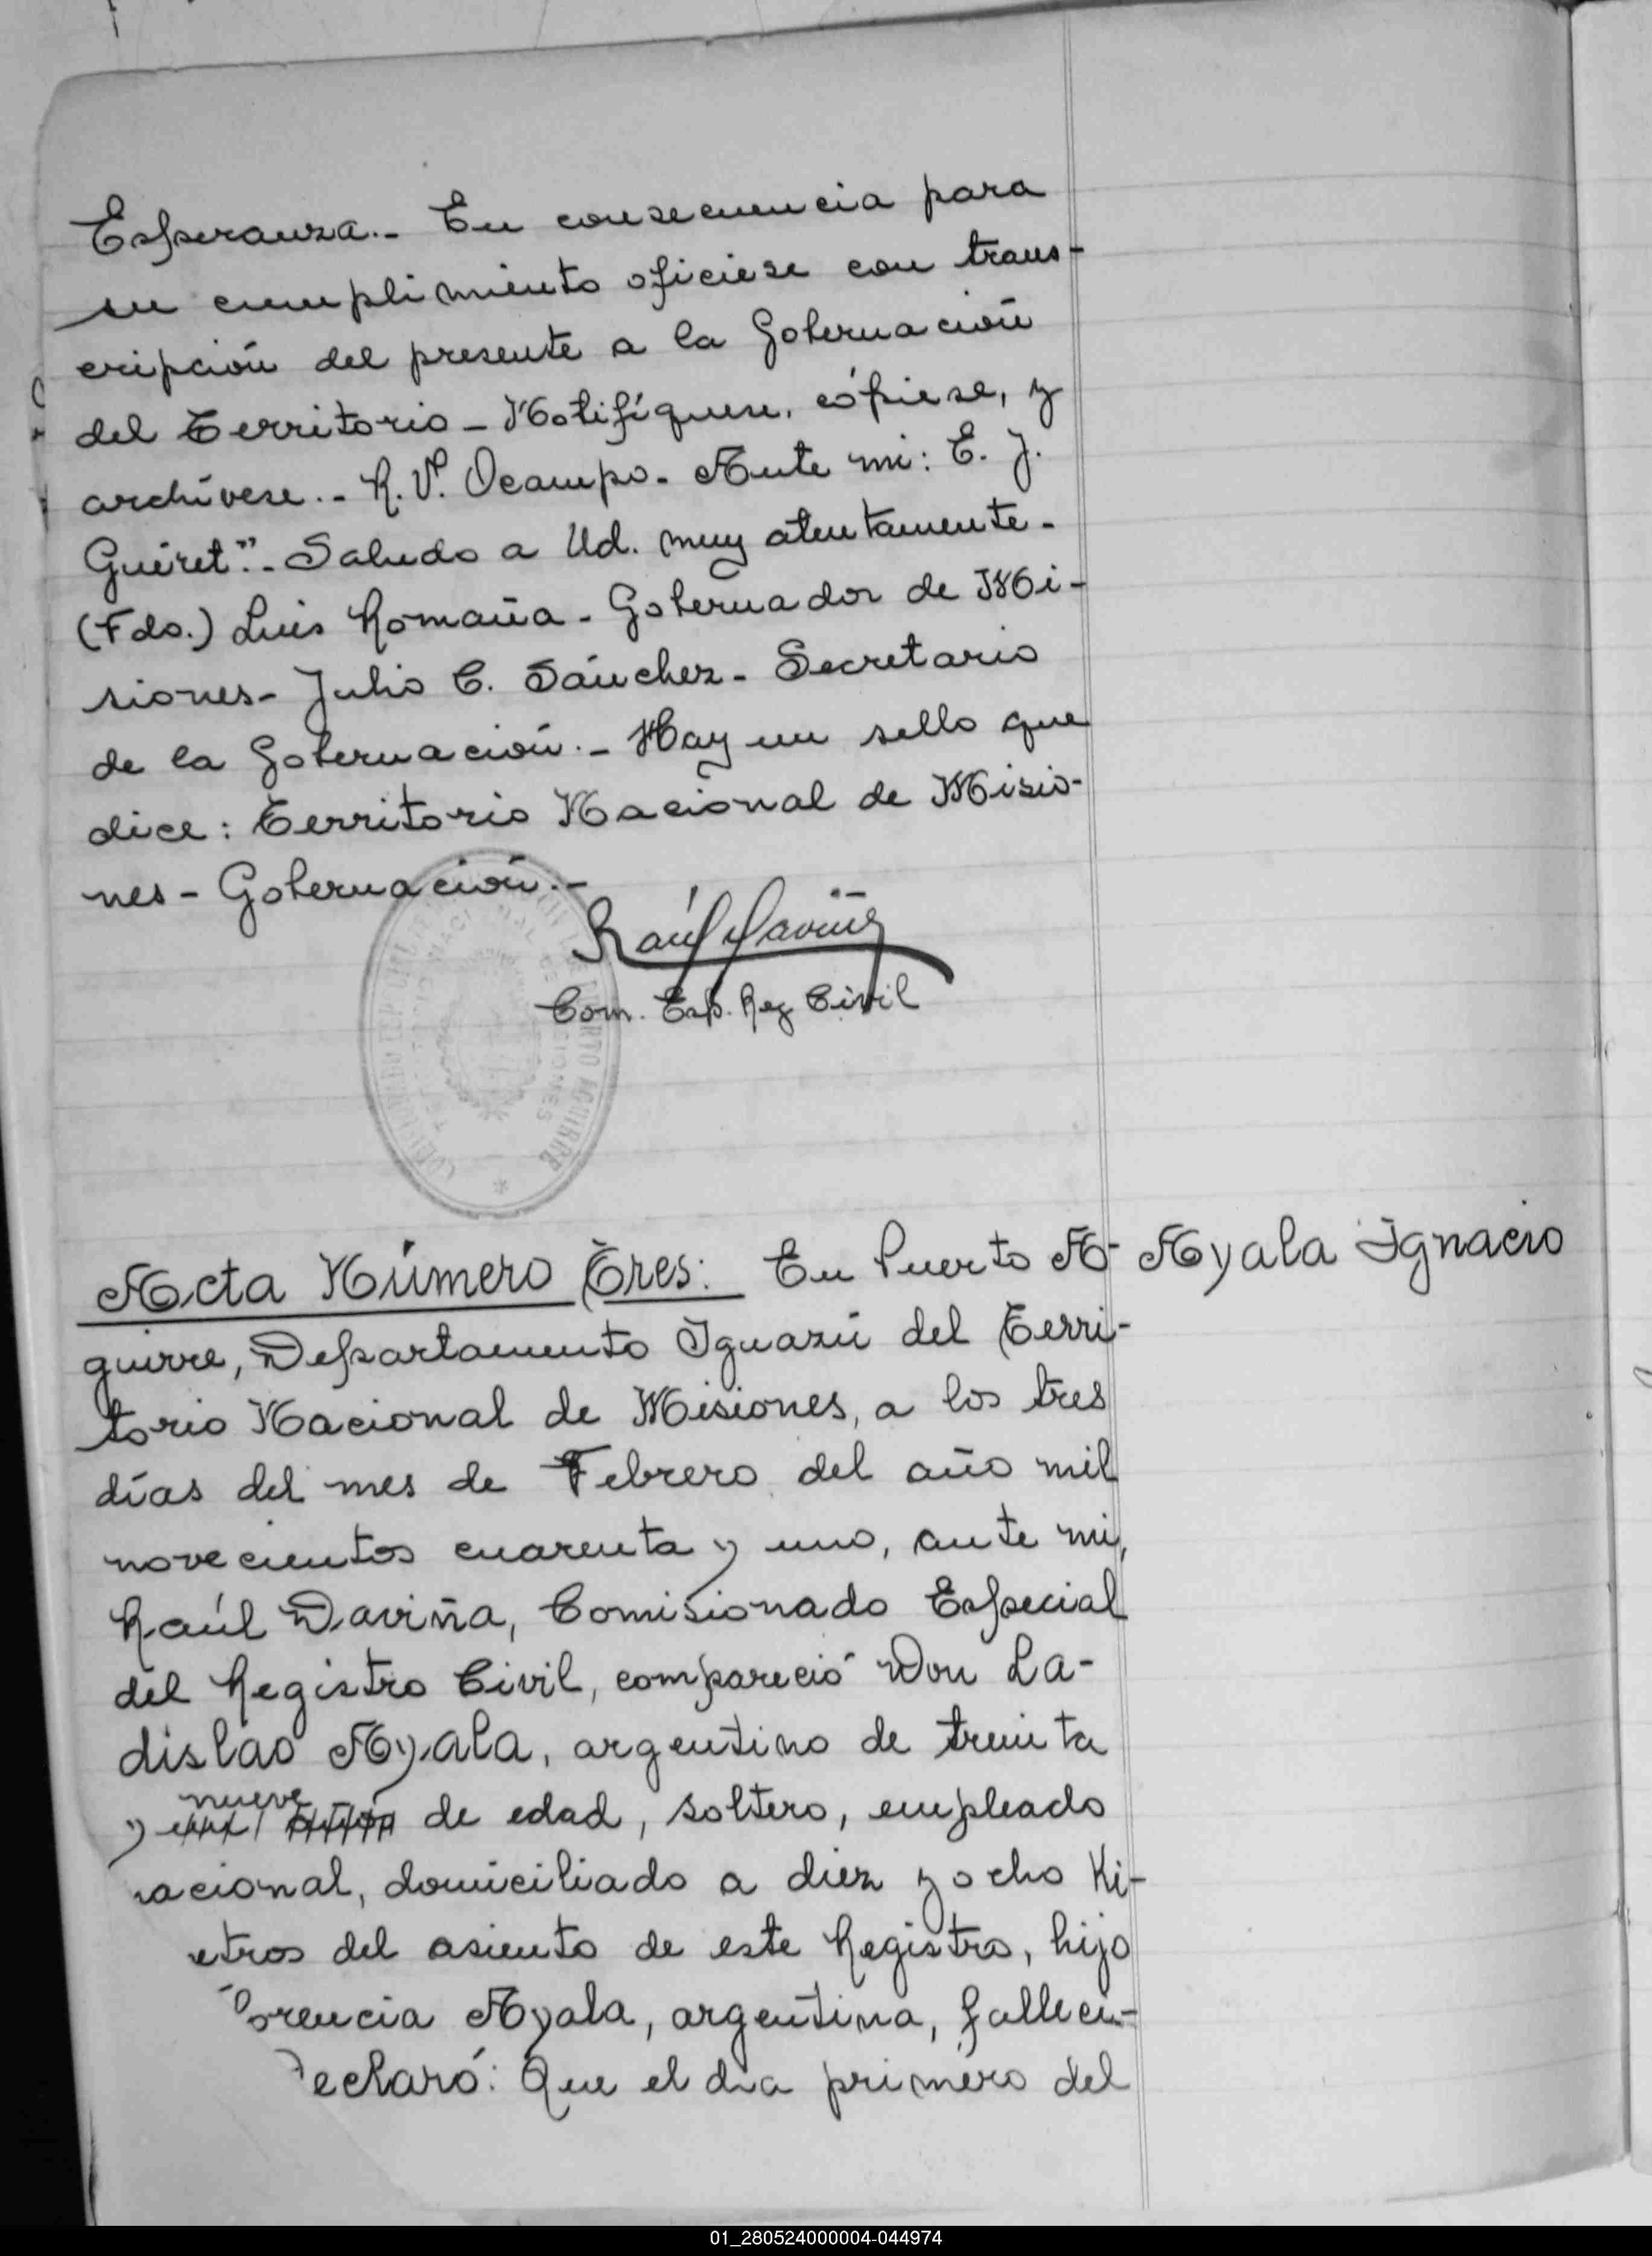 Esperanza.- En consecuencia para
su cumplimiento oficiese con trans-
cripción del presente a la Gobernación
del Territorio - Notifíquese, cópiese, y
archívese.- R. V. Ocampo. Ante mi: E. J.
Guéret".- Saludo a Ud. muy atentamente.
(Fdo.) Luis Romaña - Gobernador de Mi-
siones - Julio C. Sánchez - Secretario
de la Gobernación.- Hay un sello que
dice: Territorio Nacional de Misio-
nes - Gobernación.-
Raúl Daviña
Com. Esp. Reg Civil
PUERTO AGUIRRE
MISIONES
Acta Número Tres: En Puerto A- Ayala Ignacio
guirre, Departamento Iguazú del Terri-
torio Nacional de Misiones, a los tres
días del mes de Febrero del año mil
novecientos cuarenta y uno, ante mi,
Raúl Daviña, Comisionado Especial
del Registro Civil, compareció Don La-
dislao Ayala, argentino de treinta
nueve
y de edad, soltero, empleado
nacional, domiciliado a diez y ocho Ki-
etros del asiento de este Registro, hijo
orencia Ayala, argentina, falleci-
eclaró: Que el día primero del
01_280524000004-044974